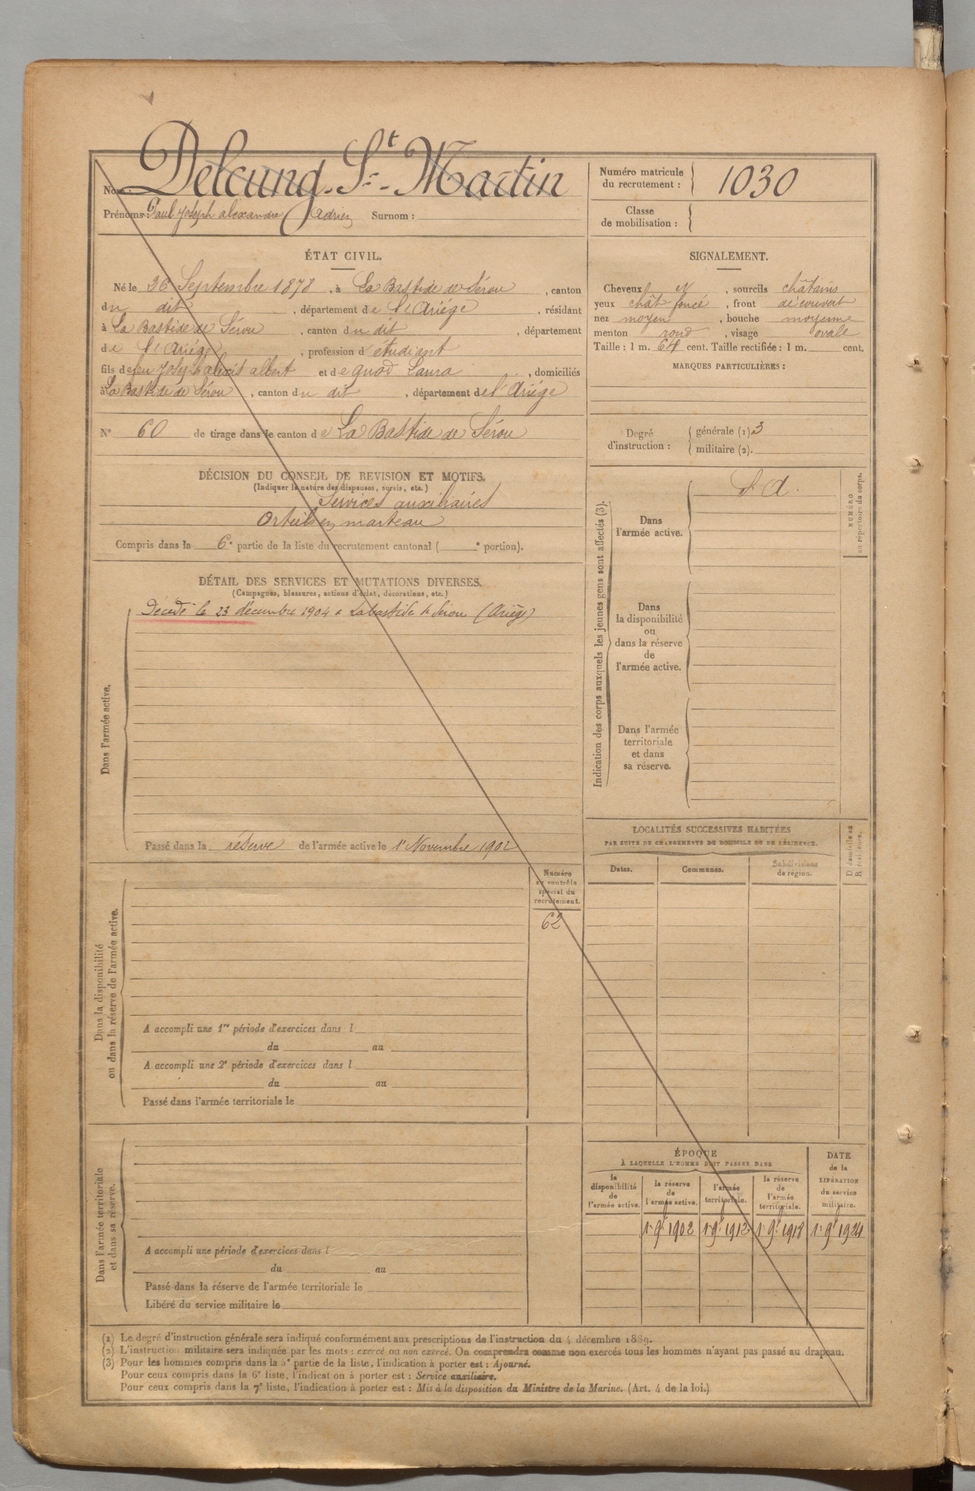 Nom : Delcung-St-Martin
Prénoms : Paul Joseph alexandre Adrien Surnom :
Numéro matricule du recrutement : 1030
Classe de mobilisation :
ÉTAT CIVIL.
Né le 26 Septembre 1878, à La Bastide de Sérou, canton
du dit, département de l'Ariège, résidant
à La Bastide de Sérou, canton du dit, département
de l'Ariège, profession d'étudiant
fils de feu Joseph alexis albert et de quod Laura, domiciliés
à La Bastide de Sérou, canton du dit, département de l'Ariège
N° 60 de tirage dans le canton de La Bastide de Sérou
SIGNALEMENT.
Cheveux et sourcils châtains
yeux chât foncé, front découvert
nez moyen, bouche moyenne
menton rond, visage ovale
Taille : 1 m. 64 cent. Taille rectifiée : 1 m. cent.
MARQUES PARTICULIÈRES :
Degré d'instruction : générale (1) 3
militaire (2).
DÉCISION DU CONSEIL DE REVISION ET MOTIFS.
(Indiquer la nature des dispenses, sursis, etc.)
Services auxiliaires
Orteils en marteau
Compris dans la 6e partie de la liste du recrutement cantonal ( e portion).
DÉTAIL DES SERVICES ET MUTATIONS DIVERSES.
(Campagnes, blessures, actions d'éclat, décorations, etc.)
Dans l'armée active.
Décédé le 23 décembre 1904 à Labastide de Sérou (Ariège)
Passé dans la réserve de l'armée active le 1er Novembre 1902
Indication des corps auxquels les jeunes gens sont affectés (3).
Dans l'armée active.
S. A.
NUMÉRO au répertoire du corps.
Dans la disponibilité ou dans la réserve de l'armée active.
Dans l'armée territoriale et dans sa réserve.
LOCALITÉS SUCCESSIVES HABITÉES
PAR SUITE DE CHANGEMENTS DE DOMICILE OU DE RÉSIDENCE.
Dates. Communes. Subdivisions de région.
Dans la disponibilité ou dans la réserve de l'armée active.
Numéro au contrôle spécial du recrutement.
62
A accompli une 1re période d'exercices dans l
du au
A accompli une 2e période d'exercices dans l
du au
Passé dans l'armée territoriale le
Dans l'armée territoriale et dans sa réserve.
A accompli une période d'exercices dans l
du au
Passé dans la réserve de l'armée territoriale le
Libéré du service militaire le
ÉPOQUE
À LAQUELLE L'HOMME DOIT PASSER DANS
la disponibilité de l'armée active.
la réserve de l'armée active.
l'armée territoriale.
la réserve de l'armée territoriale.
DATE de la LIBÉRATION du service militaire.
1er 9bre 1902 1er 9bre 1912 1er 9bre 1918 1er 9bre 1924
(1) Le degré d'instruction générale sera indiqué conformément aux prescriptions de l'instruction du 4 décembre 1889.
(2) L'instruction militaire sera indiquée par les mots : exercé ou non exercé. On comprendra comme non exercés tous les hommes n'ayant pas passé au drapeau.
(3) Pour les hommes compris dans la 5e partie de la liste, l'indication à porter est : Ajourné.
Pour ceux compris dans la 6e liste, l'indication à porter est : Service auxiliaire.
Pour ceux compris dans la 7e liste, l'indication à porter est : Mis à la disposition du Ministre de la Marine. (Art. 4 de la loi.)